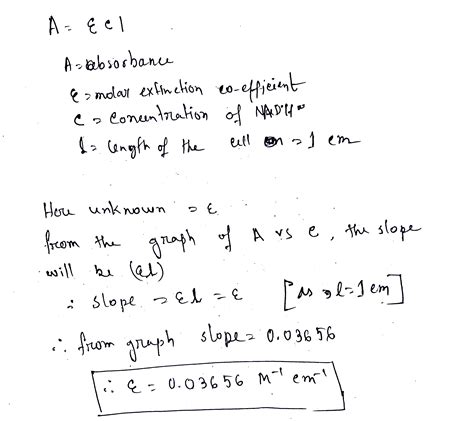 A = ε c l
A = absorbance
ε = molar extinction co-efficient
c = concentration of NADH
l = length of the cell = 1 cm
Here unknown = ε
from the graph of A vs c, the slope
will be (εl)
∴ slope = εl = ε [as, l=1 cm]
∴ from graph slope = 0.03656
∴ ε = 0.03656 M⁻¹ cm⁻¹